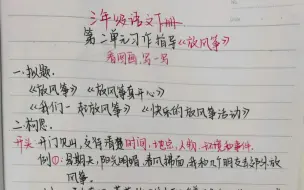 三年级语文下册
第二单元习作指导《放风筝》
看图画，写一写
一.拟题.
《放风筝》 《放风筝真开心》
《我们一起放风筝》 《快乐的放风筝活动》
二.构思.
开头:开门见山,交待清楚时间,地点,人物,环境和事件.
例①:星期天,阳光明媚,春风拂面,我和几个朋友去郊外放
风筝.